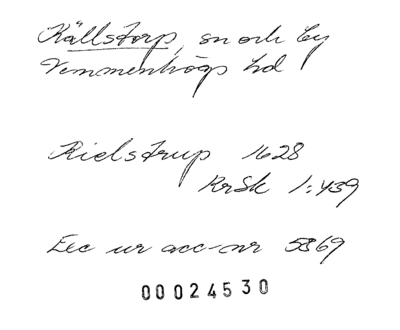 Källstorp, sn och by
Vemmenhögs hd
Kielstrup 1628
KrSk 1:439
Exc ur acc-nr 5869
00024530